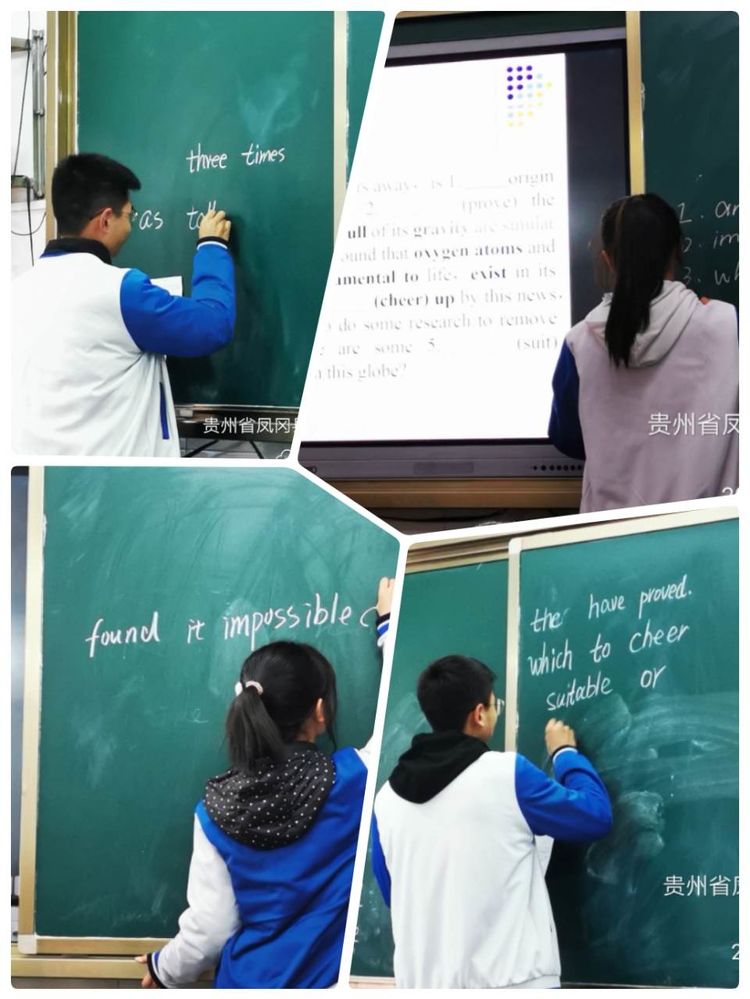 three times
as
贵州省凤冈
is away, is 1. origin
2. (prove) the
ull of its gravity are similar
ound that oxygen atoms and
amental to life, exist in its
(cheer) up by this news,
do some research to remove
are some 5. (suit)
this globe?
1.
2. im
3. wh
贵州省凤
found it impossible
the have proved.
which to cheer
suitable or
贵州省凤
2